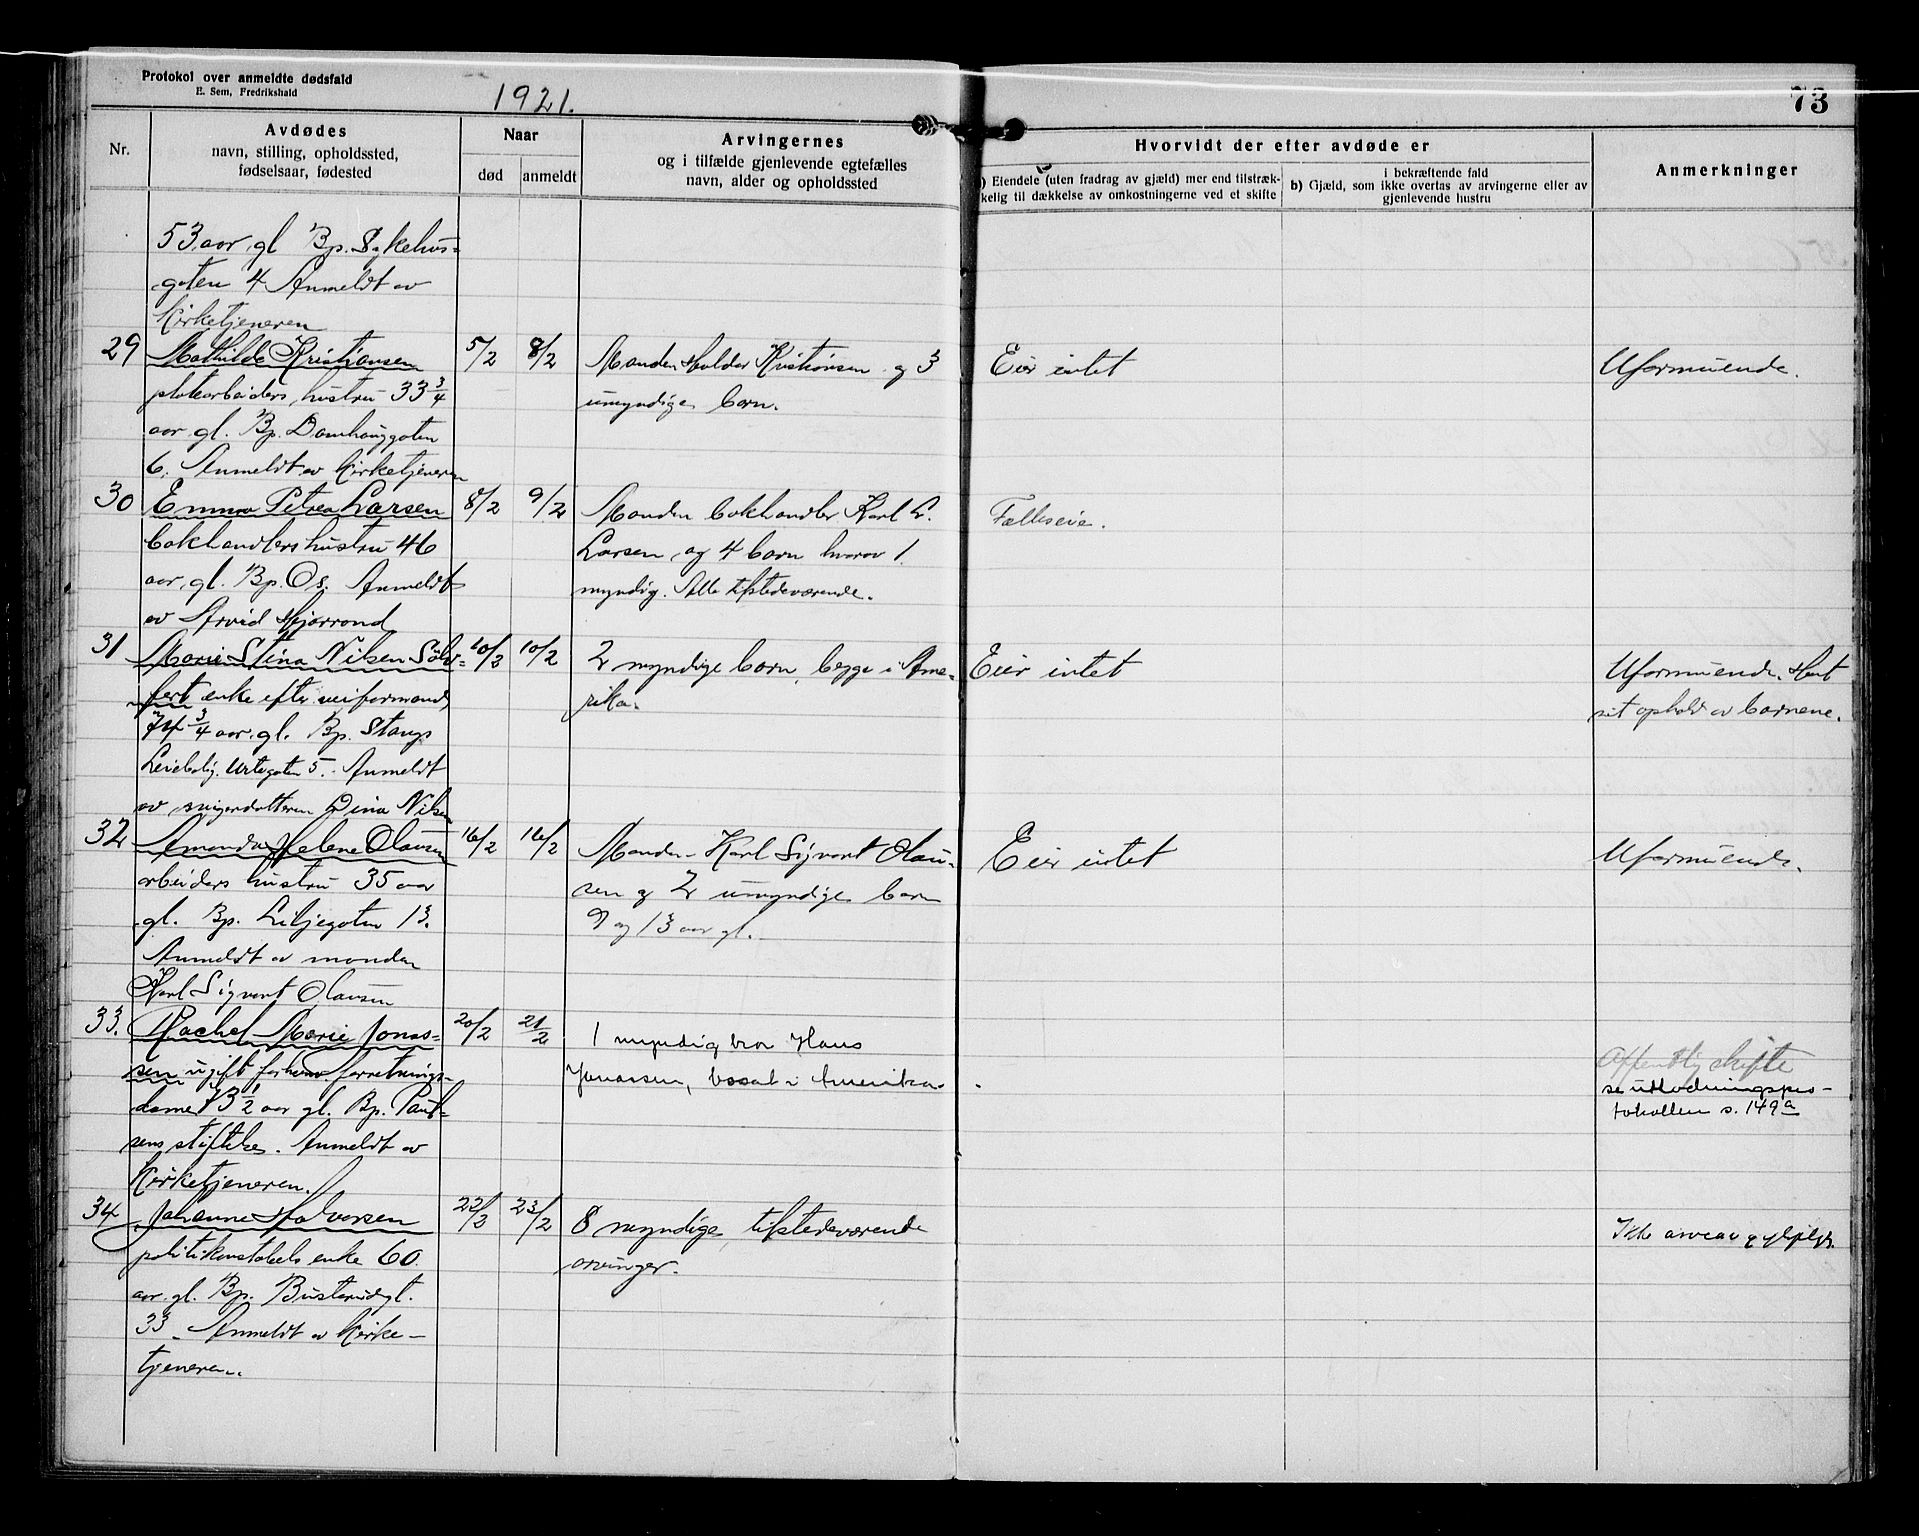 Protokol over anmeldte dødsfald
E. Sem, Fredrikshald
1921.
73
Nr.
Avdødes
navn, stilling, opholdssted,
fødselsaar, fødested
Naar
død
anmeldt
Arvingernes
og i tilfælde gjenlevende egtefælles
navn, alder og opholdssted
Hvorvidt der efter avdøde er
) Eiendele (uten fradrag av gjæld) mer end tilstræk-
kelig til dækkelse av omkostningerne ved et skifte
i bekræftende fald
b) Gjæld, som ikke overtas av arvingerne eller av
gjenlevende hustru
Anmerkninger
53 aar gl Bp. Sykehus-
gaten 4 Anmeldt av
Kirketjeneren
29
Mathilde Kristiansen
platearbeiders hustru 33 3/4
aar gl. Bp. Damhauggaten
6. Anmeldt av Kirketjeneren
5/2
8/2
Manden Halder Kristiansen og 3
umyndige barn.
Eier intet
Uformuende.
30
Emma Petrea Larsen
bokhandlers hustru 46
aar gl. Bp. Os. Anmeldt
av Arvid
8/2
9/2
Manden bokhandler Karl L.
Larsen og 4 barn hvorav 1
myndig. Alle tilstedeværende.
Fælleseie.
31
Marie Stina Nilsen Sölv-
fert enke efter veiformand,
74 3/4 aar gl. Bp. Stangs
Leiebolig Urtegaten 5. Anmeldt
av svigerdatteren Dina Nilsen
10/2
10/2
2 myndige barn, begge i Ame-
rika.
Eier intet
Uformuende. Havt
sit ophold av barnene.
32
Amanda Helene Olausen
arbeiders hustru 35 aar
gl. Bp. Liljegaten 13.
Anmeldt av manden
Karl Sigvart Olausen
16/2
16/2
Manden Karl Sigvart Olau-
sen og 2 umyndige barn
9 og 13 aar gl.
Eier intet
Uformuende.
33.
Rachel Marie Jonas-
sen ugift forhenv. forretnings-
dame 73 1/2 aar gl. Bp. Paul-
sens stiftelse. Anmeldt av
Kirketjeneren.
20/2
21/2
1 myndig bror Hans
Jonassen, bosat i Amerika.
Offentlig skifte
se utlodningspro-
tokollen s. 149a
34
Johanne Halvorsen
politikonstabels enke 60
aar gl. Bp. Busterudgt.
33. Anmeldt av Kirke-
tjeneren.
22/2
23/2
8 myndige, tilstedeværende
arvinger.
Ikke arveavgiftspligt.